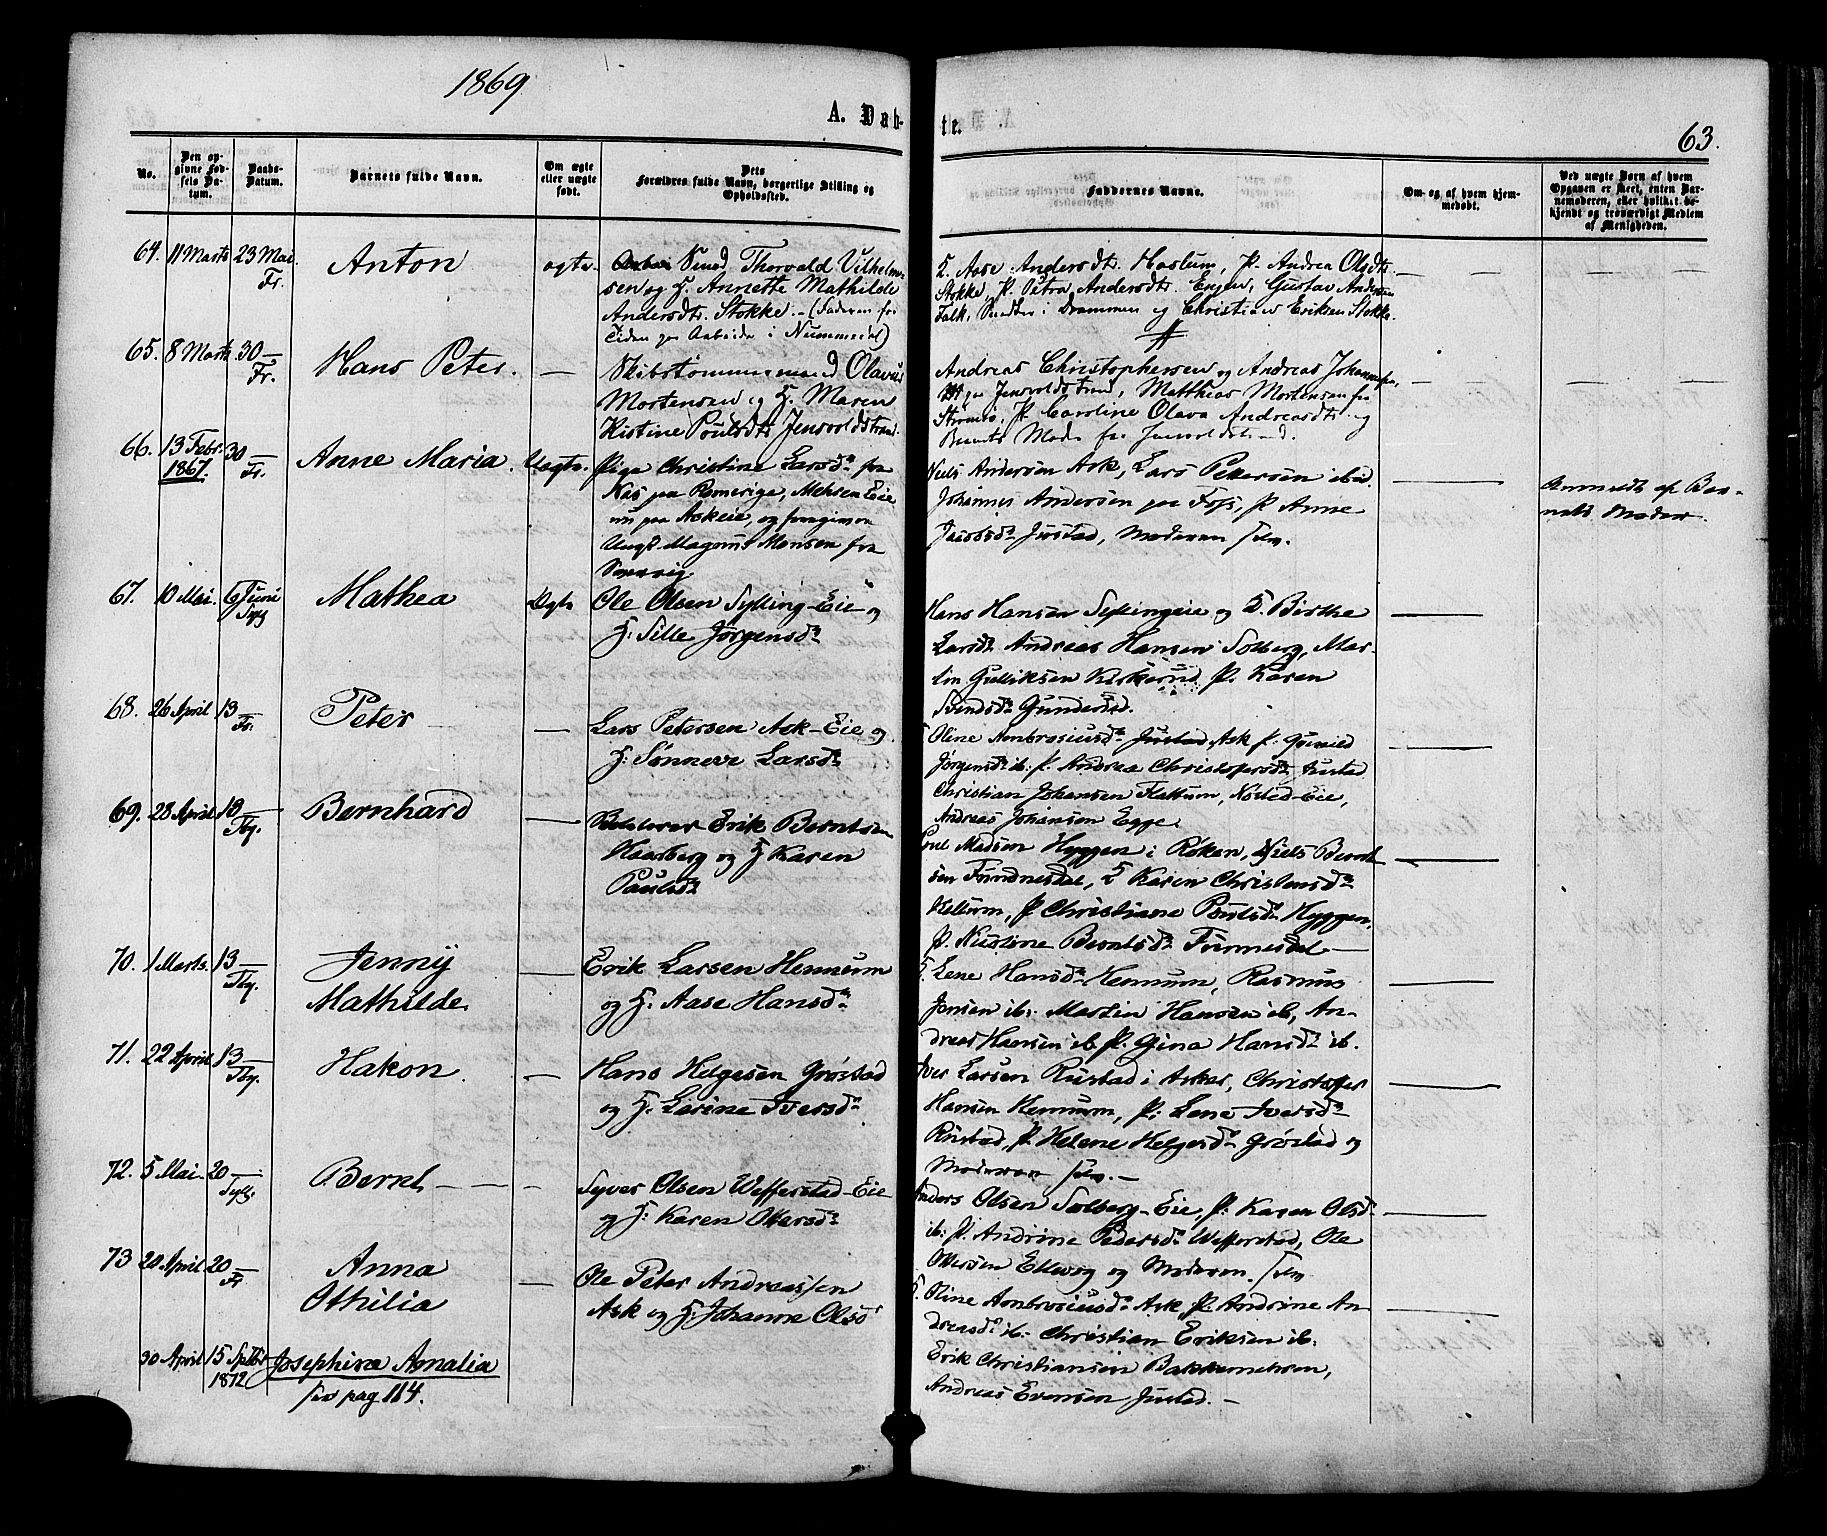 1869
A. Døb-
te.
63.
No.
Den op-
givne Fød-
sels Da-
tum.
Daabs-
Datum.
Barnets fulde Navn.
Om ægte
eller uægte
født.
Dets
Forældres fulde Navn, borgerlige Stilling og
Opholdssted.
Faddernes Navne.
Om og af hvem hjem-
medøbt.
Ved uægte Børn af hvem
Opgaven er skeet, enten Bar-
nemoderen, eller hvilket be-
kjendt og troværdigt Medlem
af Menigheden.
64. 11 Marts 23 Mai Fr. Anton ægte. Smed Thorvald Vilhelm-
sen og H. Annette Mathilde
Andersdtr. Stokke. (Faderen for
Tiden paa Arbeide i Nummedal)
Aase Andersdtr. Haslum, P. Andrea Olsdtr.
Stokke, P. Petra Andersdtr. Enger, Gustav Andersen
Falk, i Drammen og Christian Eriksen Stokke.
65. 8 Marts 30 Fr. Hans Peter. — Skibstømmermand Olavus
Mortensen og H. Maren
Kistine Poulsdtr. Jensvoldstrand.
Andreas Christophersen og Andreas Johannesen,
paa Jensvoldstrand, Matthias Mortensen fra
Strømsø, P. Caroline Olava Andreasdtr. og
Barnets Moder fra Jensvoldstrand.
66. 13 Febr. 1867. 30 Fr. Anne Maria. Uægte. Pige Christine Larsdr. fra
Næs paa Romerige,
nu paa Askeie, og
Ungk. Magnus Monsen fra
Niels Andersen Ask, Lars Pettersen ibid.
Johannes Andersen paa Foss, P. Anne
Jacobsdr. Justad, Moderen selv.
Anmeldt af Bar-
nets Moder.
67. 10 Mai. 6 Juni Syl Mathea Ægte Ole Olsen Sylling-Eie og
H: Sille Jørgensdr.
Hans Hansen Syllingeie og H. Birthe
Larsdr. Andreas Hansen Solberg, Mar-
tin Gulliksen Kirkerud P. Karen
Svendsdr. Gunderud.
68. 26 April 13 Fr. Peter — Lars Petersen Ask-Eie og
H: Sønneve Larsdr.
Oline Ambrosiusdr. Justad Ask P. Gunild
Jørgensdr. ib: P. Andrea Christophersdr. Justad
Christian Johansen Flattum, Nøsted-Eie,
Andreas Johansen Egge.
69. 28 April 18 Tby. Bernhard — Erik Berntsen
Haarberg og H Karen
Paulsdr.
Poul Madsen Hyggen i Røken, Niels Bernt-
sen H Karen Christensdr.
P. Christiane Poulsdr. Hyggen,
P. Kistine Berntsdr.
70. 1 Marts. 13 Tby. Jenny
Mathilde. — Erik Larsen Hennum
og H. Aase Hansdr.
Lene Hansdr. Hennum, Rasmus
Jensen ib: Martin Hansen ib, An-
dreas Hansen ib P. Gina Hansdr. ib.
71. 22 April 13 Tby. Hakon. — Hans Helgesen Grøstad
og H. Larine Iversdr.
Iver Larsen Rustad i Asker, Christopher
Hansen Hennum, P: Lene Iversdr.
Rustad, P. Helene Helgesdr. Grøstad og
Moderen selv.
72. 5 Mai. 20 Syll. Bernt — Syver Olsen Wefferstad-Eie
og H: Karen Ottersdr.
Anders Olsen Solberg-Eie, P: Karen Olsdr.
ib: P. Andrine Pedersdr. Wefferstad, Ole
Ottersen og Moderen selv
73 20 April 20 Fr Anna
Othilia — Ole Peter Andreassen
Ask og H. Johanne Olsdr
Oline Ambrosiusdr. Ask, P. Andrine An-
dreasdr. ib. Christian Eriksen ib.
Erik Christiansen
Andreas Evensen Justad.
30 April 15 Septbr 1872 Josephine Amalia
see pag 114.